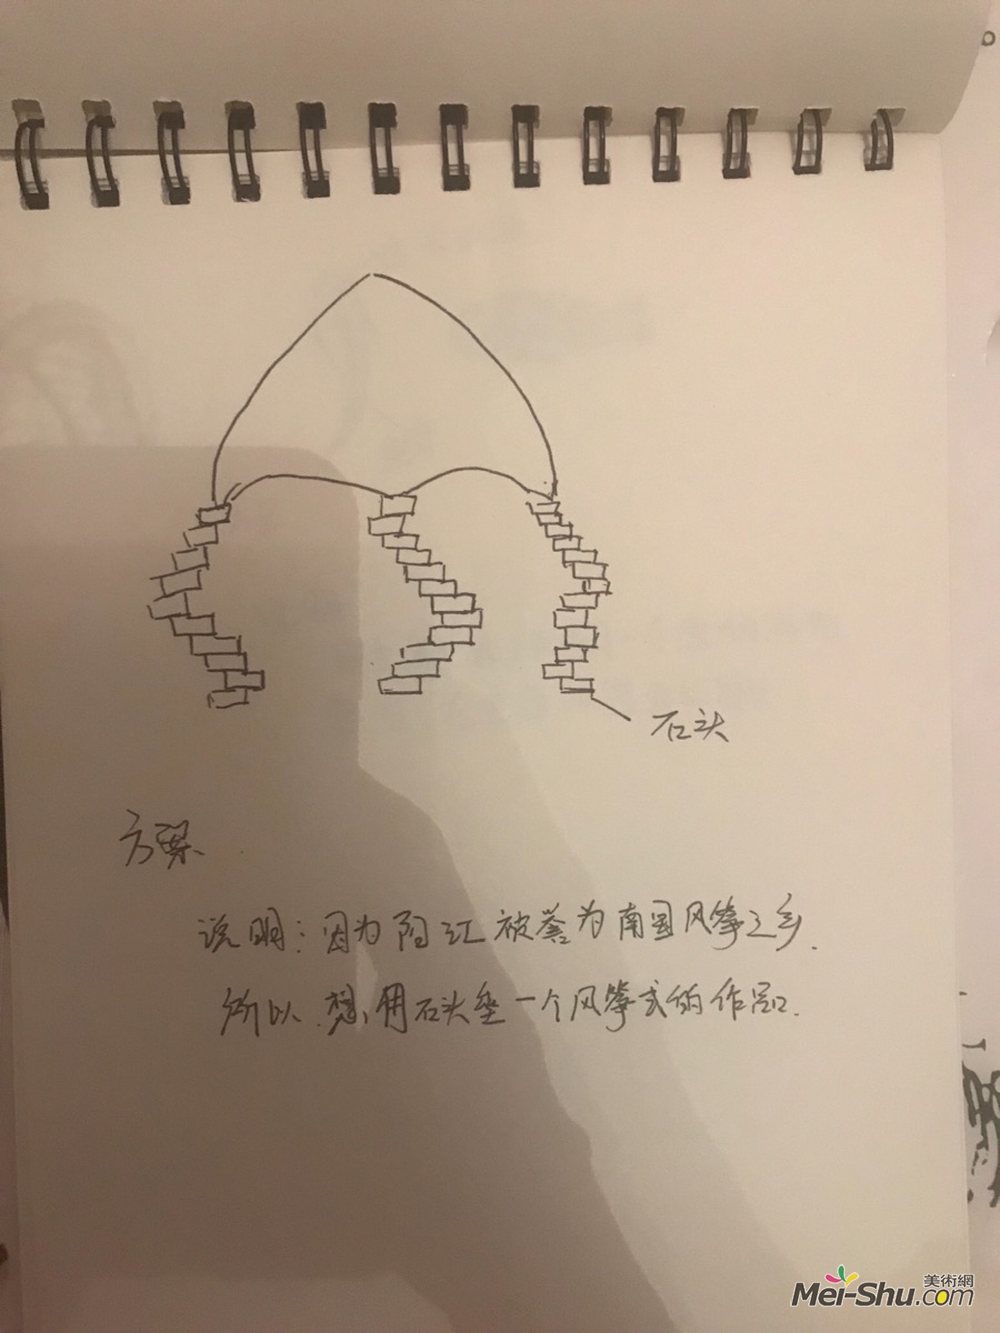 石头
方案
说明：因为阳江被誉为南国风筝之乡.
所以.想用石头垒一个风筝式的作品.
美術網
MEI-SHU.COM